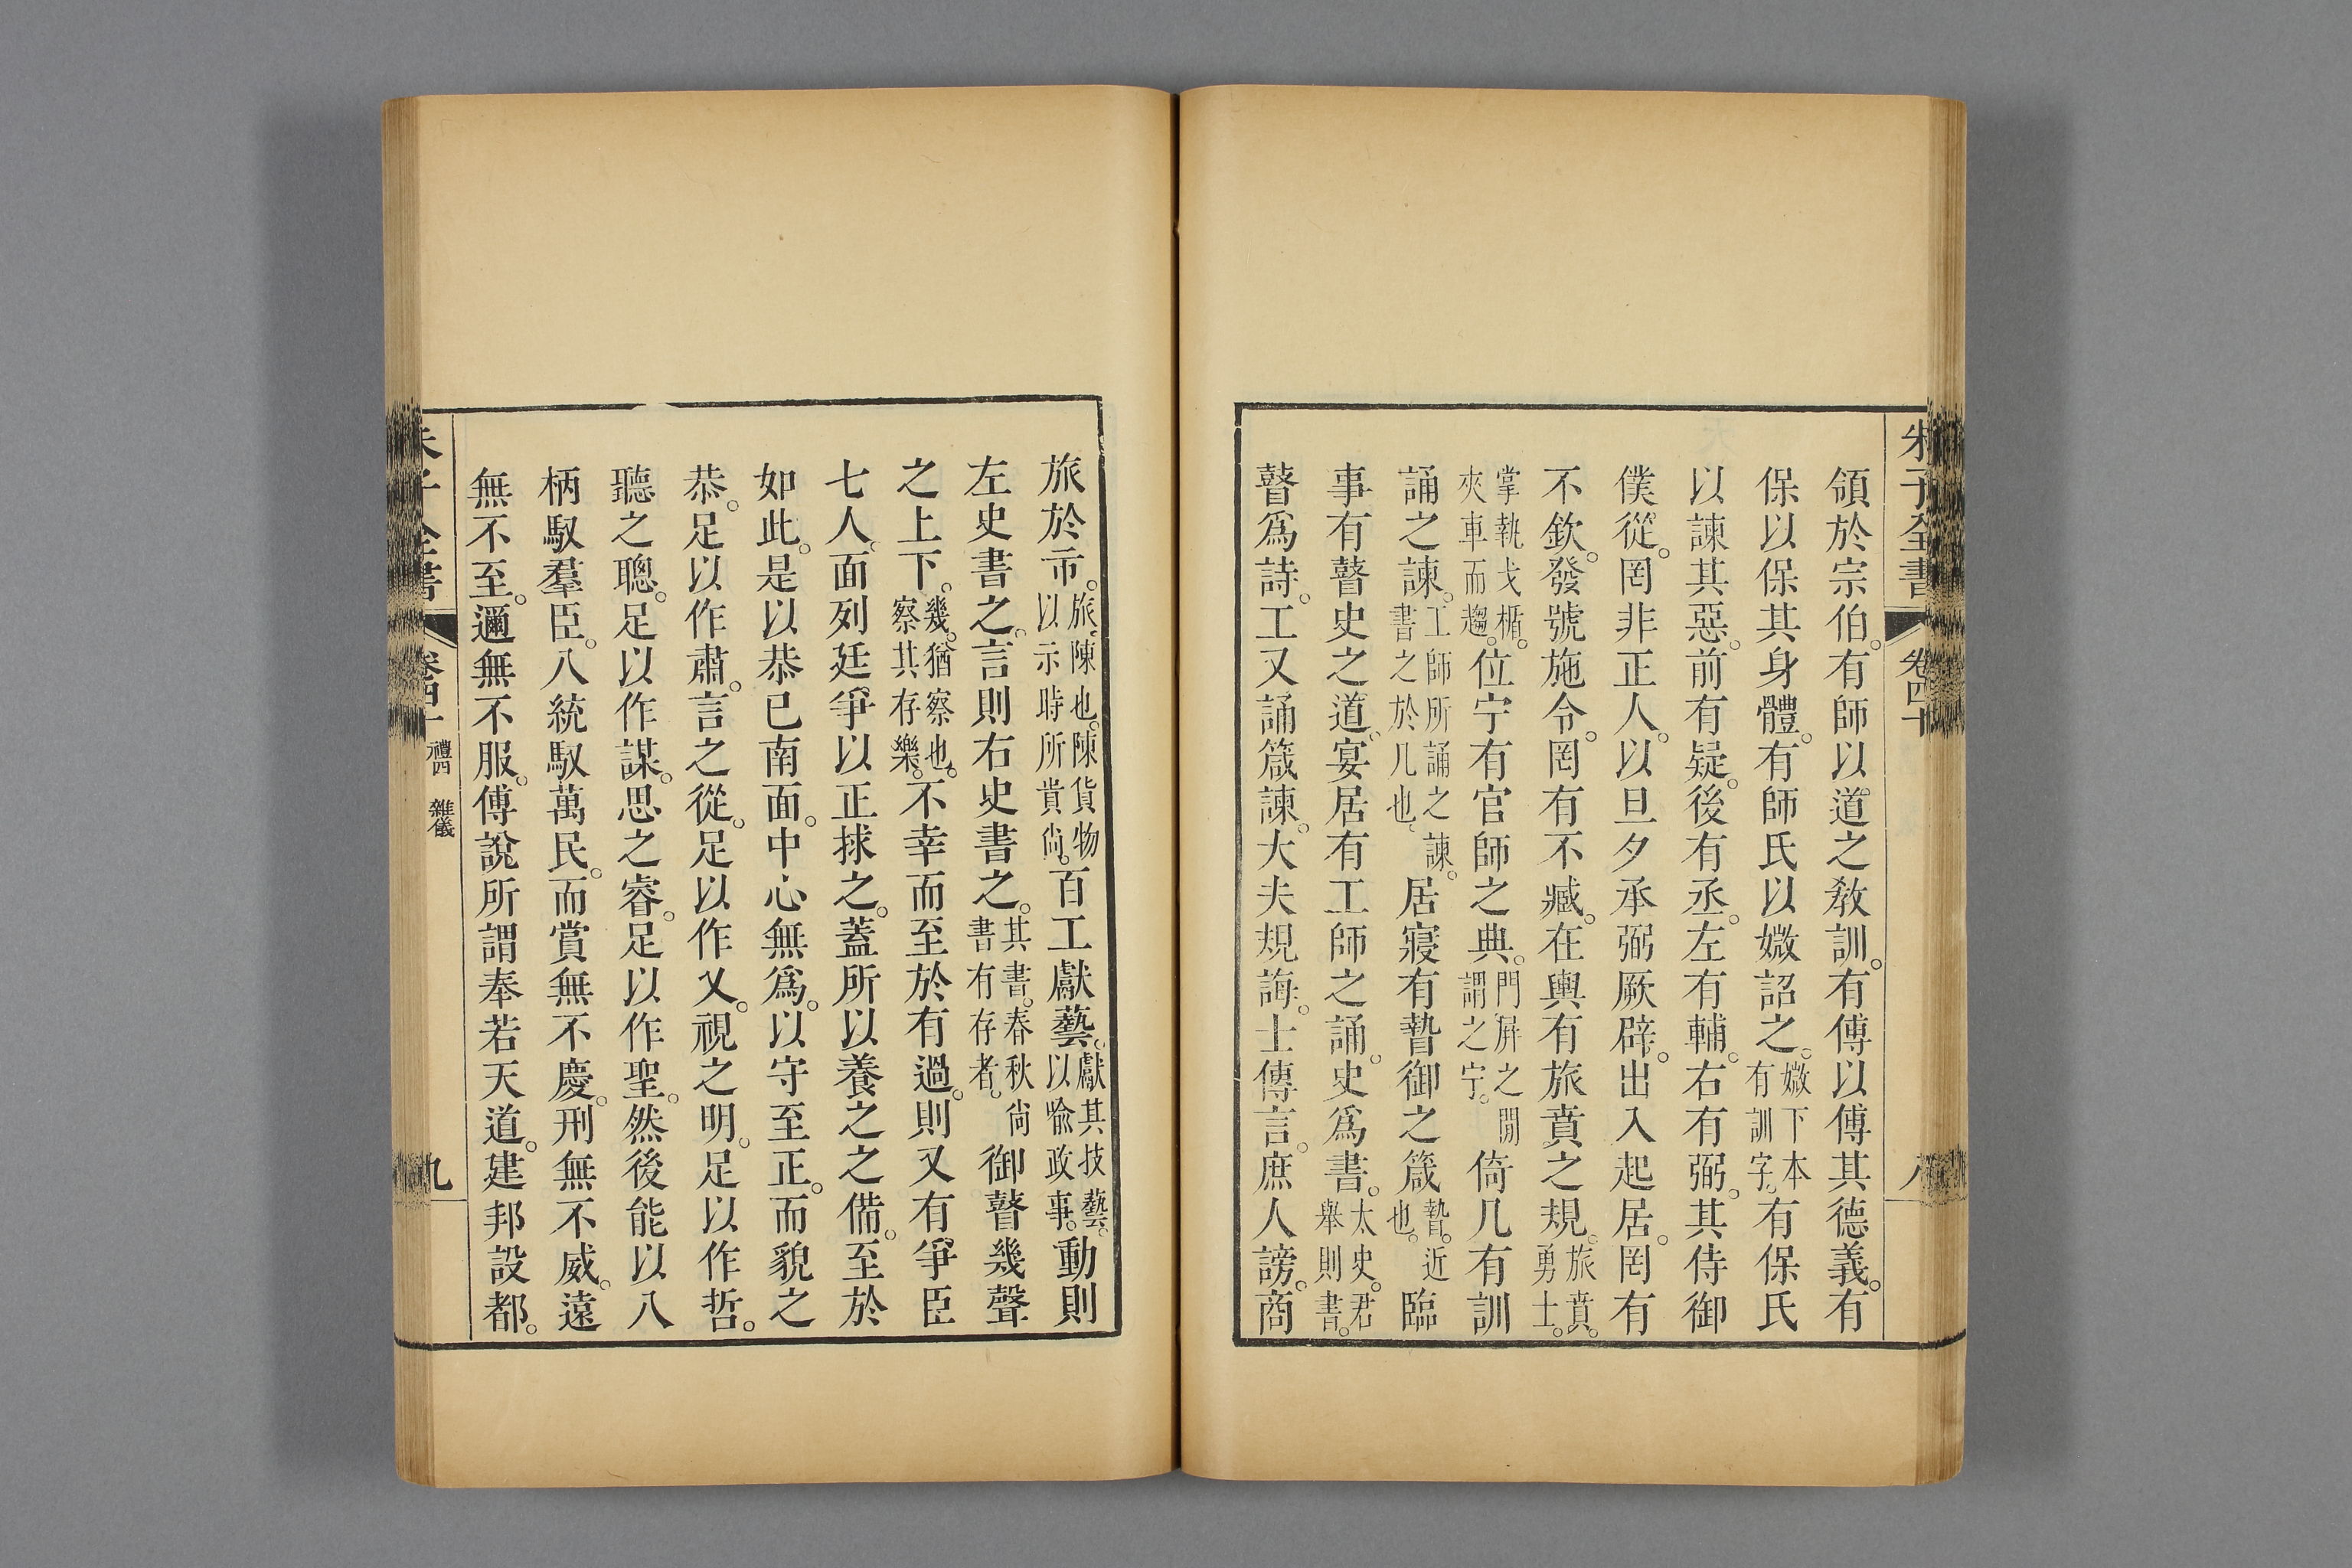 朱子全書 卷四十 八
領於宗伯。有師以道之敎訓。有傅以傅其德義。有
保以保其身體。有師氏以媺詔之。媺下本有訓字。有保氏
以諫其惡。前有疑。後有丞。左有輔。右有弼。其侍御
僕從。罔非正人。以旦夕承弼厥辟。出入起居。罔有
不欽。發號施令。罔有不臧。在輿有旅賁之規。旅賁。勇士。
掌執戈楯。夾車而趨。位宁有官師之典。門屏之閒謂之宁。倚几有訓
誦之諫。工師所誦之諫。書之於几也。居寢有暬御之箴。暬。近也。臨
事有瞽史之道。宴居有工師之誦。史爲書。太史。君舉則書。
瞽爲詩。工又誦箴諫。大夫規誨。士傳言。庶人謗。商
旅於市。旅。陳也。陳貨物以示時所貴尙。百工獻藝。獻其技藝。以喩政事。動則
左史書之。言則右史書之。其書。春秋尙書有存者。御瞽幾聲
之上下。幾。猶察也。察其存樂。不幸而至於有過。則又有爭臣
七人。面列廷爭以正捄之。蓋所以養之之備。至於
如此。是以恭已南面。中心無爲。以守至正。而貌之
恭。足以作肅。言之從。足以作乂。視之明。足以作哲。
聽之聰。足以作謀。思之睿。足以作聖。然後能以八
柄馭羣臣。八統馭萬民。而賞無不慶。刑無不威。遠
無不至。邇無不服。傅說所謂奉若天道。建邦設都。
朱子全書 卷四十 禮四 雜儀 九